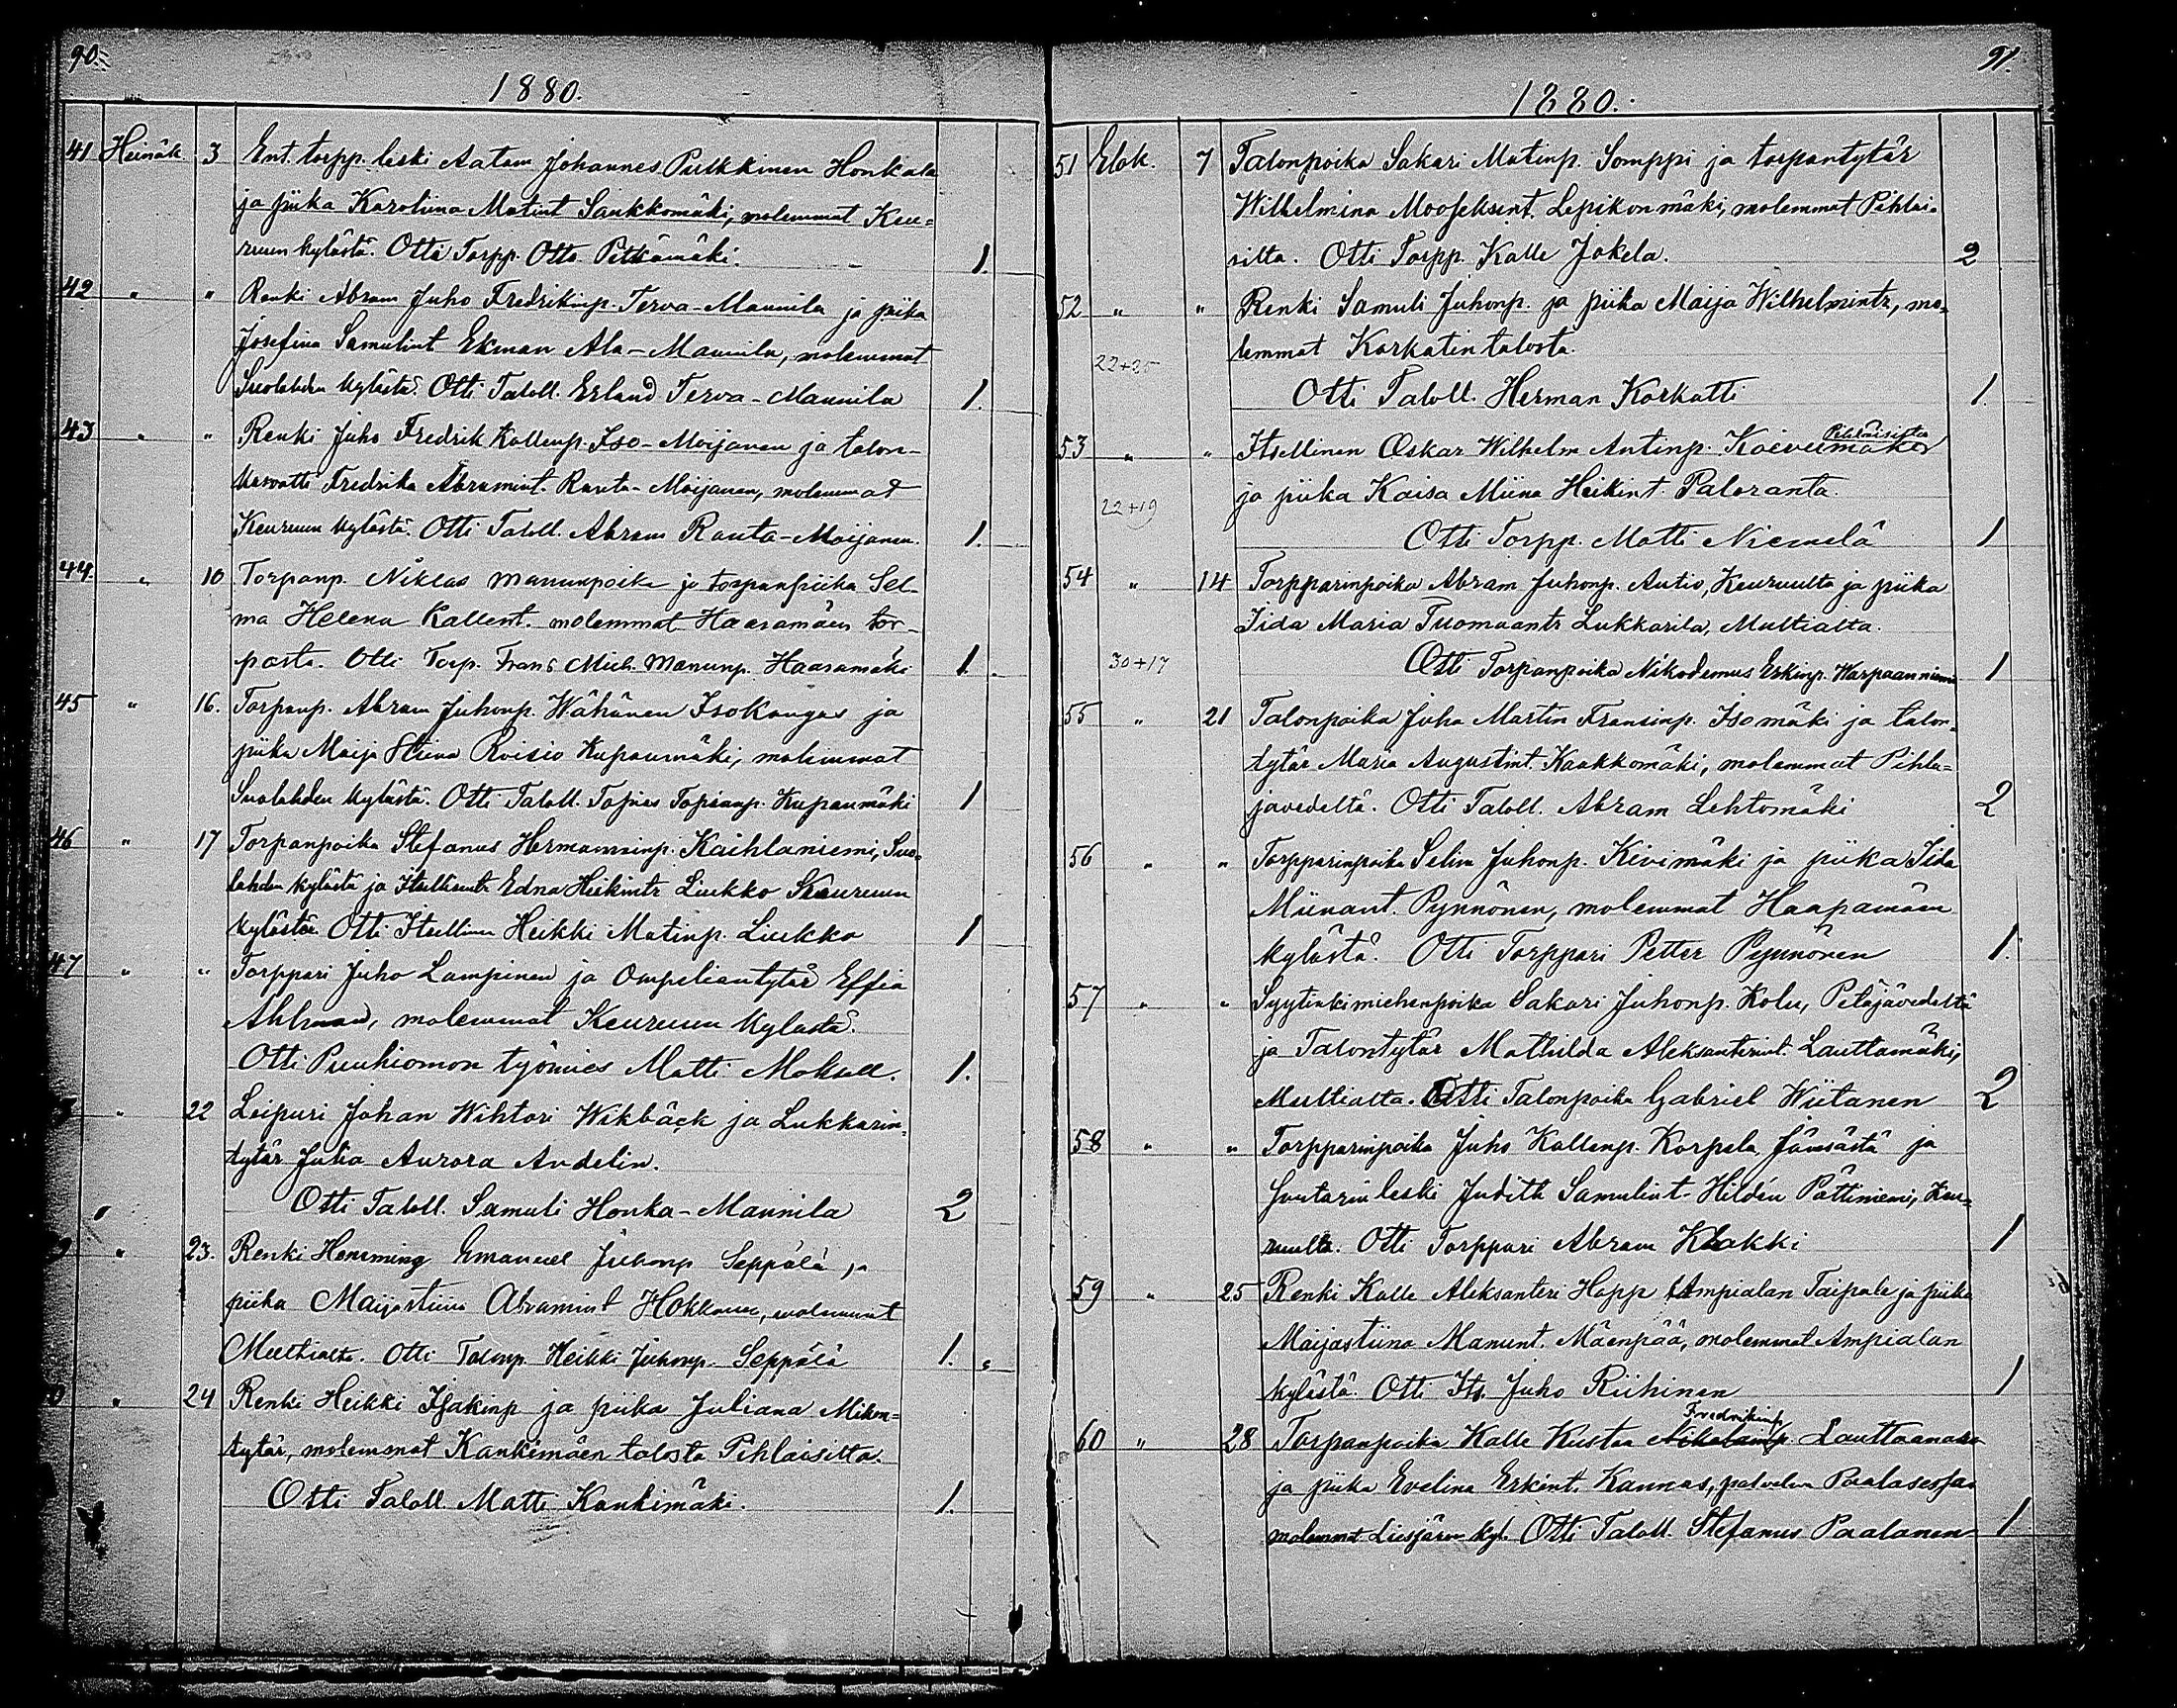 90.
1880.
41 Heinäk. 3 Ent. torpp. leski Aatam Johannes Pulkkinen Honkala
ja piika Karoliina Matint Saukkomäki, molemmat Keu-
ruun kylästä. Otti Torpp. Otto Pitkämäki. 1.
42 " " Renki Abram Juho Fredrikinp. Terva-Mannila ja piika
Josefina Samulint Ekman Ala-Mannila, molemmat
Suolahden kylästä. Otti Taloll. Erland Terva-Mannila 1.
43 " " Renki Juho Fredrik Kallenp. Iso-Moijanen ja talon-
kasvatti Fredrika Abramint. Ranta-Moijanen, molemmat
Keuruun kylästä. Otti Taloll. Abram Ranta-Moijanen. 1.
44. " 10 Torpanp. Niklas Manunpoika ja torpanpiika Sel-
ma Helena Kallent. molemmat Haaramäen tor-
pasta. Otti Torp. Frans Mich. Manunp. Haaramäki 1.
45 " 16. Torpanp. Abram Juhonp. Wähänen Isokangas ja
piika Maija Stiina Roisio Kupanmäki, molemmat
Suolahden kylästä. Otti Taloll. Topias Topianp. Kupanmäki 1
46 " 17 Torpanpoika Stefanus Hermanninp. Kaihlaniemi, Suo-
lahden kylästä ja Edna Heikintr Liukko Keuruun
kylästä. Otti Itsellinen Heikki Matinp. Liukko 1
47 " " Torppari Juho Lampinen ja Ompeliantytär Effia
Ahlman, molemmat Keuruun kylästä.
Otti Puuhiomon työmies Matti Moksell. 1.
" 22 Leipuri Johan Wihtori Wikbäck ja Lukkarin-
tytär Julia Aurora Andelin.
Otti Taloll. Samuli Honka-Mannila 2
9 " 23. Renki Hemming Emanuel Juhonp Seppälä ja
piika Maijastiina Abramint Hokkanen, molemmat
Multialta. Otti Talonp. Heikki Juhonp. Seppälä 1.
0 " 24 Renki Heikki Isakinp ja piika Juliana Mikon-
tytär, molemmat Kankimäen talosta Pihlaisilta.
Otti Taloll Matti Kankimäki. 1.
91.
1880.
51 Elok. 7 Talonpoika Sakari Matinp. Somppi ja torpantytär
Wilhelmina Mooseksent. Lepikonmäki, molemmat Pihlai-
silta. Otti Torpp. Kalle Jokela. 2
52 " " Renki Samuli Juhonp. ja piika Maija Wilhelmintr, mo-
22+25 lemmat Korkatin talosta.
Otti Taloll. Herman Korkatti 1.
Pihlaisista
53 " " Itsellinen Oskar Wilhelm Antinp. Koivumäki
22+19 ja piika Kaisa Miina Heikint. Paloranta.
Otti Torpp. Matti Niemelä 1
54 " 14 Torpparinpoika Abram Juhonp. Autio, Keuruulta ja piika
Iida Maria Tuomaantr Lukkarila, Multialta.
30+17 Otti Torpanpoika Nikodemus Eskinp. Harpaanniemi 1
55 " 21 Talonpoika Juha Martin Fransinp. Isomäki ja talon-
tytär Maria Augustint. Kaakkomäki, molemmat Pihla-
javedeltä. Otti Taloll. Abram Lehtomäki 2
56 " " Torpparinpoika Selim Juhonp. Kivimäki ja piika Iida
Miinant. Pynnönen, molemmat Haapamäen
kylästä. Otti Torppari Petter Pynnönen 1.
57 " " Syytinkimiehenpoika Sakari Juhonp. Kolu, Petäjävedeltä
ja Talontytär Mathilda Aleksanterint. Lauttamäki,
Multialta. Otti Talonpoika Gabriel Wiitanen 2
58 " " Torpparinpoika Juho Kallenp. Korpela Jämsästä ja
suutarin leski Judith Samulint. Hildén Pättiniemi, Keu-
ruulta. Otti Torppari Abram Klakki 1
59 " 25 Renki Kalle Aleksanteri Hopp Ampialan Taipale ja piika
Maijastiina Manunt. Mäenpää, molemmat Ampialan
kylästä. Otti Its. Juho Riihinen 1
Fredrikinp
60 " 28 Torpanpoika Kalle Kustaa Nikolainp. Lauttaanaho
ja piika Evelina Erkint. Kannas, palvelova Paalasessa
molemmat Liesjärven kyl. Otti Taloll. Stefanus Paalanen 1